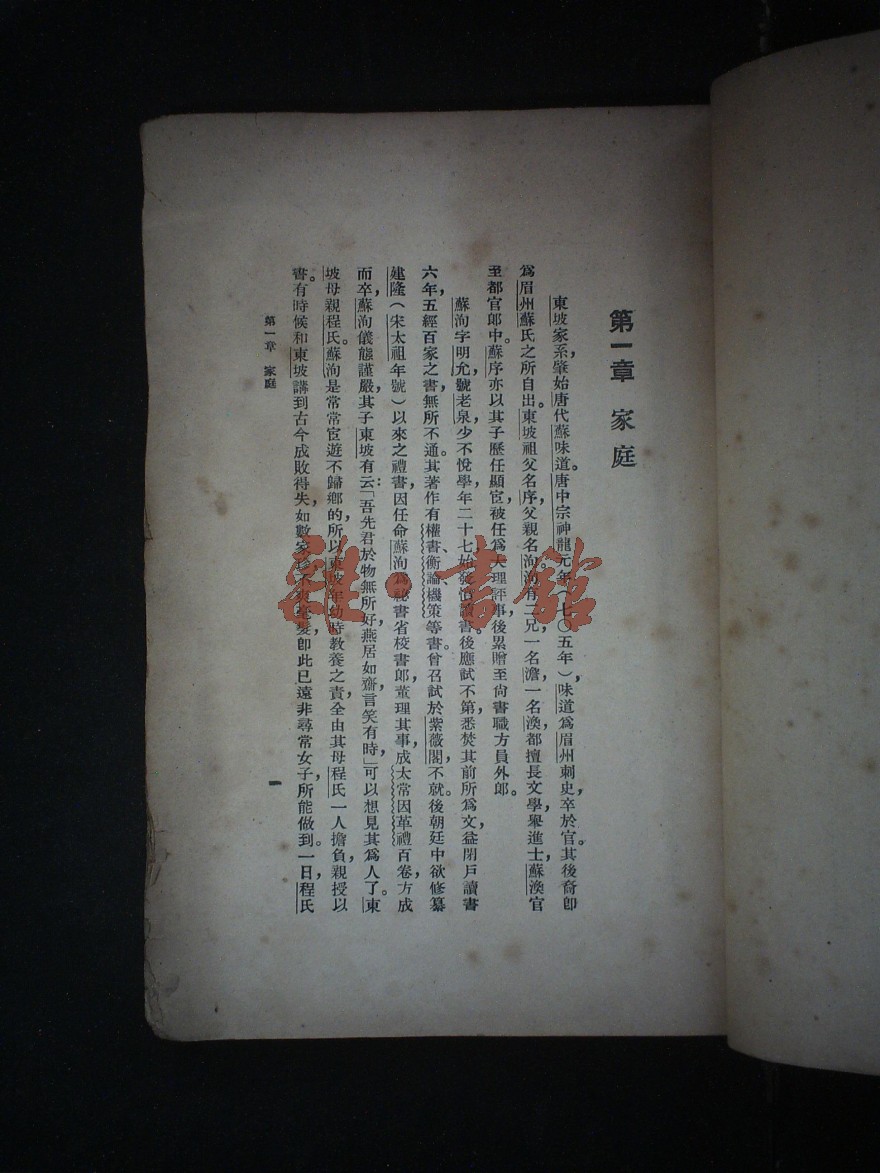 第一章 家庭
東坡家系，肇始唐代蘇味道。唐中宗神龍元年（七〇五年），味道爲眉州刺史，卒於官。其後裔卽
爲眉州蘇氏之所自出。東坡祖父名序，父親名洵。洵有二兄，一名澹，一名渙，都擅長文學，舉進士，蘇渙官
至都官郎中。蘇序亦以其子歷任顯宦，被任爲大理評事，後累贈至尙書職方員外郎。
蘇洵字明允，號老泉，少不悅學，年二十七始發憤讀書。後應試不第，悉焚其前所爲文，益閉戶讀書
六年，五經百家之書，無所不通。其著作有權書、衡論、機策等書。曾召試於紫薇閣，不就。後朝廷中欲修纂
建隆（宋太祖年號）以來之禮書，因任命蘇洵爲祕書省校書郎，董理其事，成太常因革禮百卷，方成
而卒，蘇洵儀態謹嚴，其子東坡有云：「吾先君於物無所好，燕居如齋，言笑有時，」可以想見其爲人了。東
坡母親程氏。蘇洵是常常宦遊不歸鄉的，所以東坡年幼時教養之責，全由其母程氏一人擔負，親授以
書。有時候和東坡講到古今成敗得失，如數家珍，不爽毫髮，卽此已遠非尋常女子，所能做到。一日，程氏
第一章 家庭
一
雜·書館